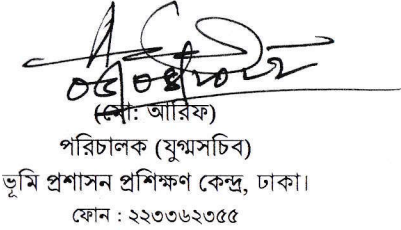 (মো: আরিফ)
পরিচালক (যুগ্মসচিব)
ভূমি প্রশাসন প্রশিক্ষণ কেন্দ্র, ঢাকা।
ফোন : ২২৩৩৬২৩৫৫